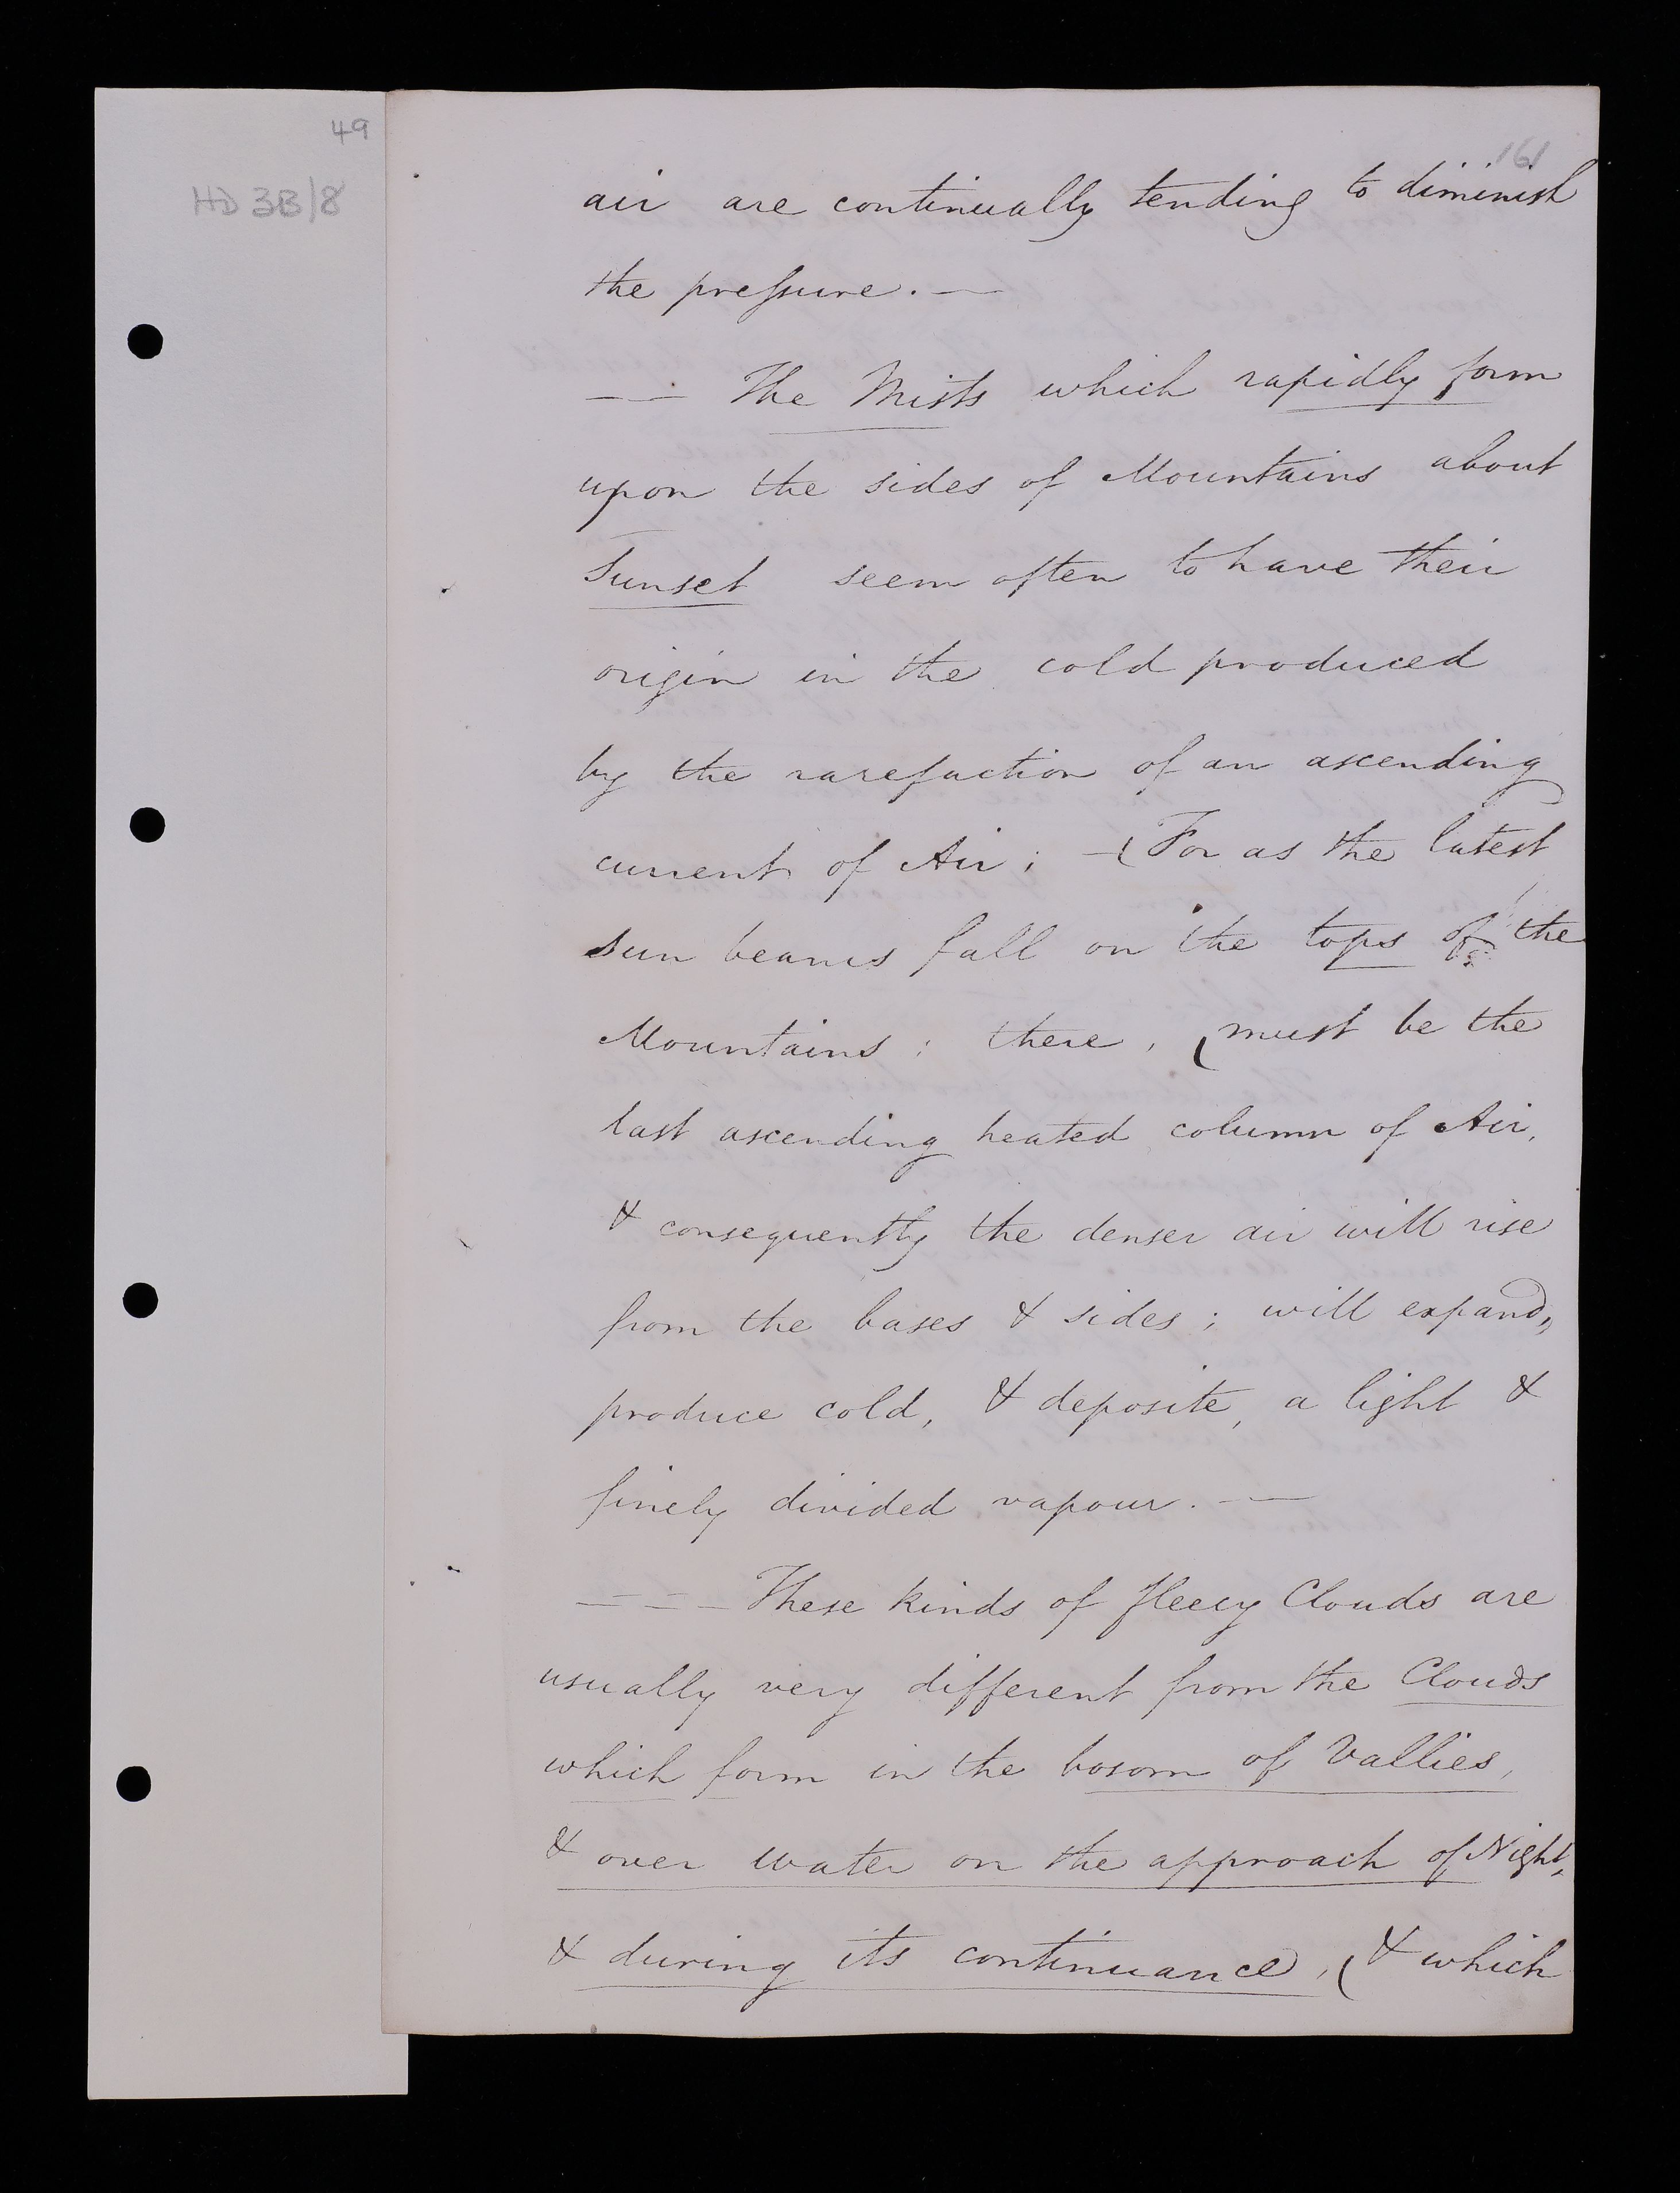 49
HD 3B/8
161
air are continually tending to diminish
the pressure. —
— — The Mists which rapidly form
upon the sides of Mountains about
Sunset seem often to have their
origin in the cold produced
by the rarefaction of an ascending
current of Air; — (For as the latest
sun beams fall on the tops of the
Mountains: there, (must be the
last ascending heated column of Air,
& consequently the denser air will rise
from the bases & sides; will expand,
produce cold, & deposite, a light &
finely divided vapour. — —
— — — These kinds of fleecy Clouds are
usually very different from the Clouds
which form in the bosom of Vallies,
& over water on the approach of Night,
& during its continuance, (& which